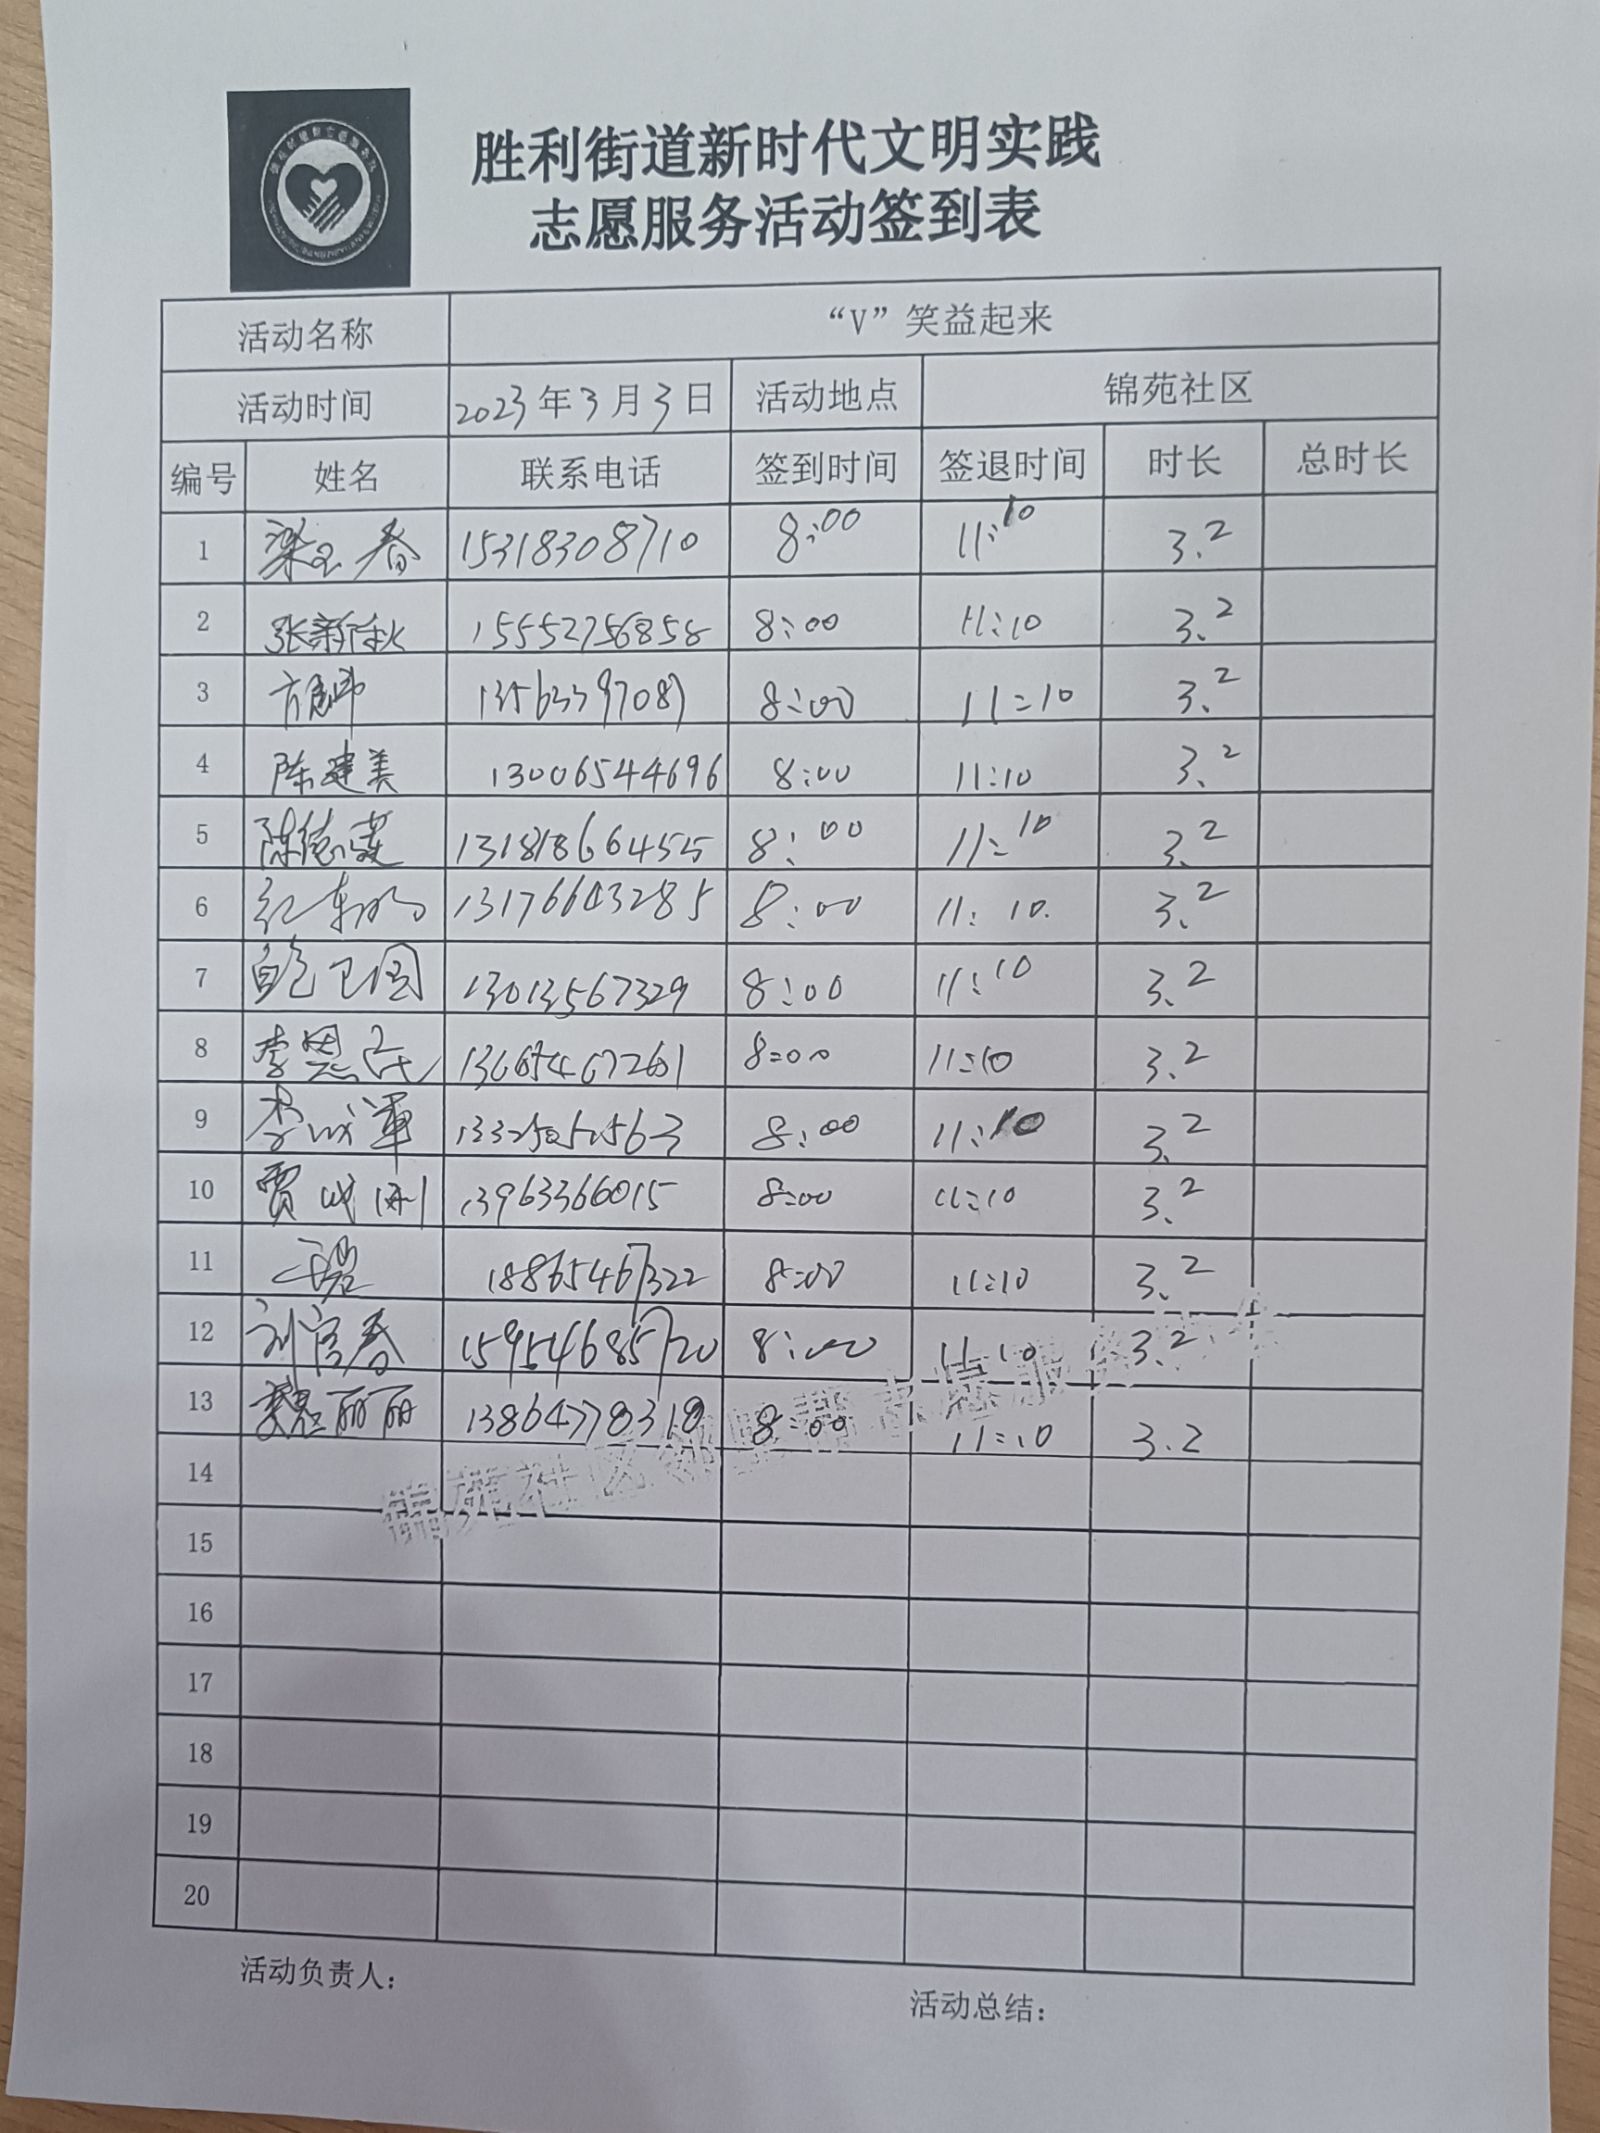 胜利街道新时代文明实践
志愿服务活动签到表
活动名称 “V”笑益起来
活动时间 2023年3月3日 活动地点 锦苑社区
编号 姓名 联系电话 签到时间 签退时间 时长 总时长
1 梁玉春 15318308710 8:00 11:10 3.2
2 张新秋 15552756858 8:00 11:10 3.2
3 13563397087 8:00 11:10 3.2
4 陈建美 13006544696 8:00 11:10 3.2
5 陈德英 13181866455 8:00 11:10 3.2
6 13176643285 8:00 11:10 3.2
7 鲍卫国 13013567329 8:00 11:10 3.2
8 李恩民 8:00 11:10 3.2
9 李成军 8:00 11:10 3.2
10 贾成刚 13963366015 8:00 11:10 3.2
11 18865467322 8:00 11:10 3.2
12 刘官春 15954685720 8:00 11:10 3.2
13 魏丽丽 13864778318 8:00 11:10 3.2
锦苑社区邻里帮志愿服务
14
15
16
17
18
19
20
活动负责人：
活动总结：